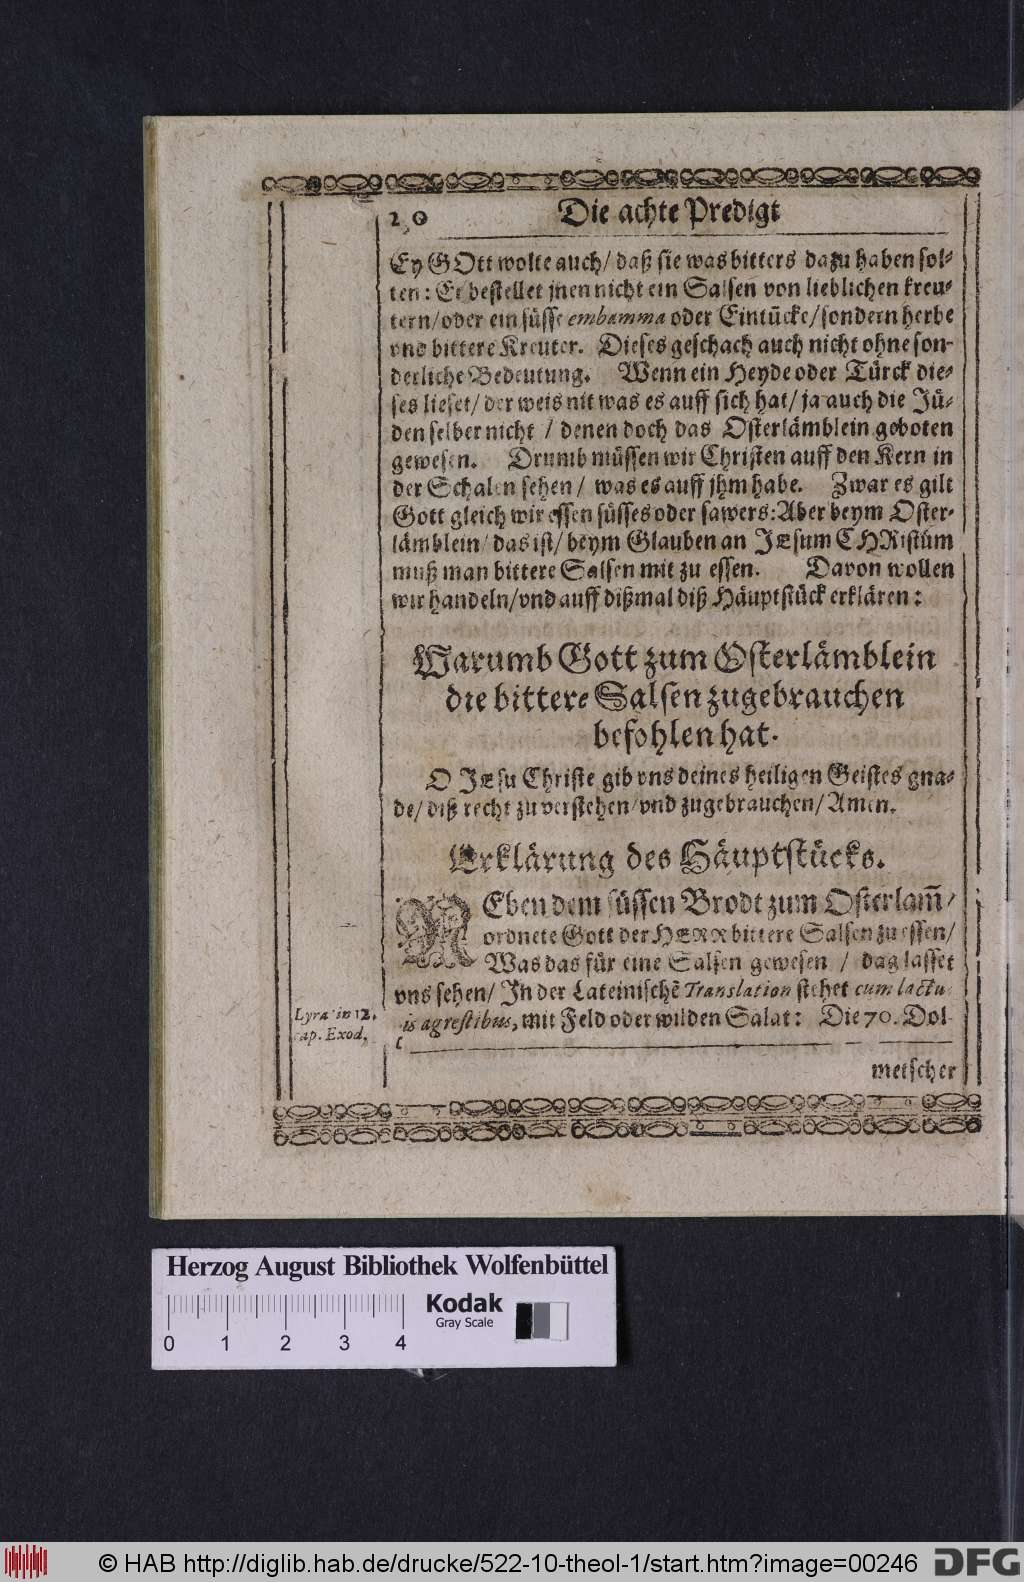 20 Die achte Predigt
Ey GOtt wolte auch/ daß sie was bitters dazu haben sol-
ten: Er bestellet jnen nicht ein Salsen von lieblichen kreu-
tern/ oder ein süsse embamma oder Eintücke/ sondern herbe
vnd bittere Kreuter. Dieses geschach auch nicht ohne son-
derliche Bedeutung. Wenn ein Heyde oder Türck die-
ses lieset/ der weis nit was es auff sich hat/ ja auch die Jü-
den selber nicht / denen doch das Osterlämblein geboten
gewesen. Drumb müssen wir Christen auff den Kern in
der Schalen sehen / was es auff jhm habe. Zwar es gilt
Gott gleich wir essen süsses oder sawers: Aber beym Oster-
lämblein/ das ist/ beym Glauben an JEsum CHRistum
muß man bittere Salsen mit zu essen. Davon wollen
wir handeln/ vnd auff dißmal diß Häuptstück erklären:
Warumb Gott zum Osterlämblein
die bittere Salsen zugebrauchen
befohlen hat.
O JEsu Christe gib vns deines heiligen Geistes gna-
de/ diß recht zuverstehen/ vnd zugebrauchen/ Amen.
Erklärung des Häuptstücks.
NEben dem süssen Brodt zum Osterlam̃/
ordnete Gott der HERR bittere Salsen zu essen/
Was das für eine Salsen gewesen / das lasset
vns sehen/ In der Lateinischẽ Translation stehet cum lactu
is agrestibus, mit Feld oder wilden Salat: Die 70. Dol-
Lyra in 12.
cap. Exod.
metscher
Herzog August Bibliothek Wolfenbüttel
Kodak
Gray Scale
0 1 2 3 4
© HAB http://diglib.hab.de/drucke/522-10-theol-1/start.htm?image=00246
DFG